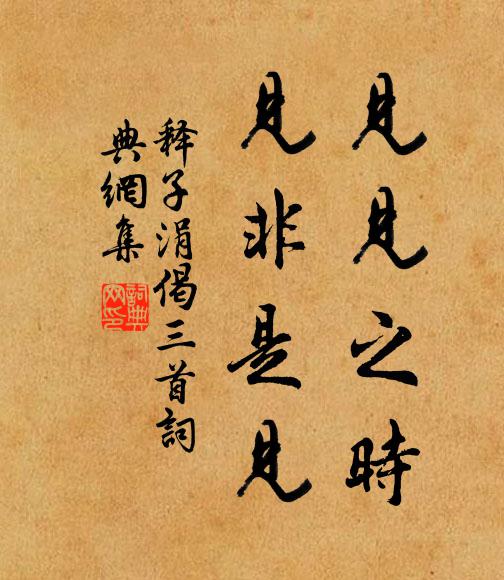 見見之時
見非是見
释子涓偈三首詞
典網集
詞典網印